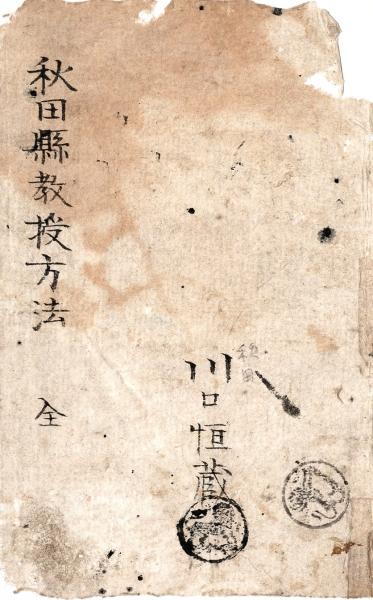 秋田縣教授方法　全
川口恒蔵